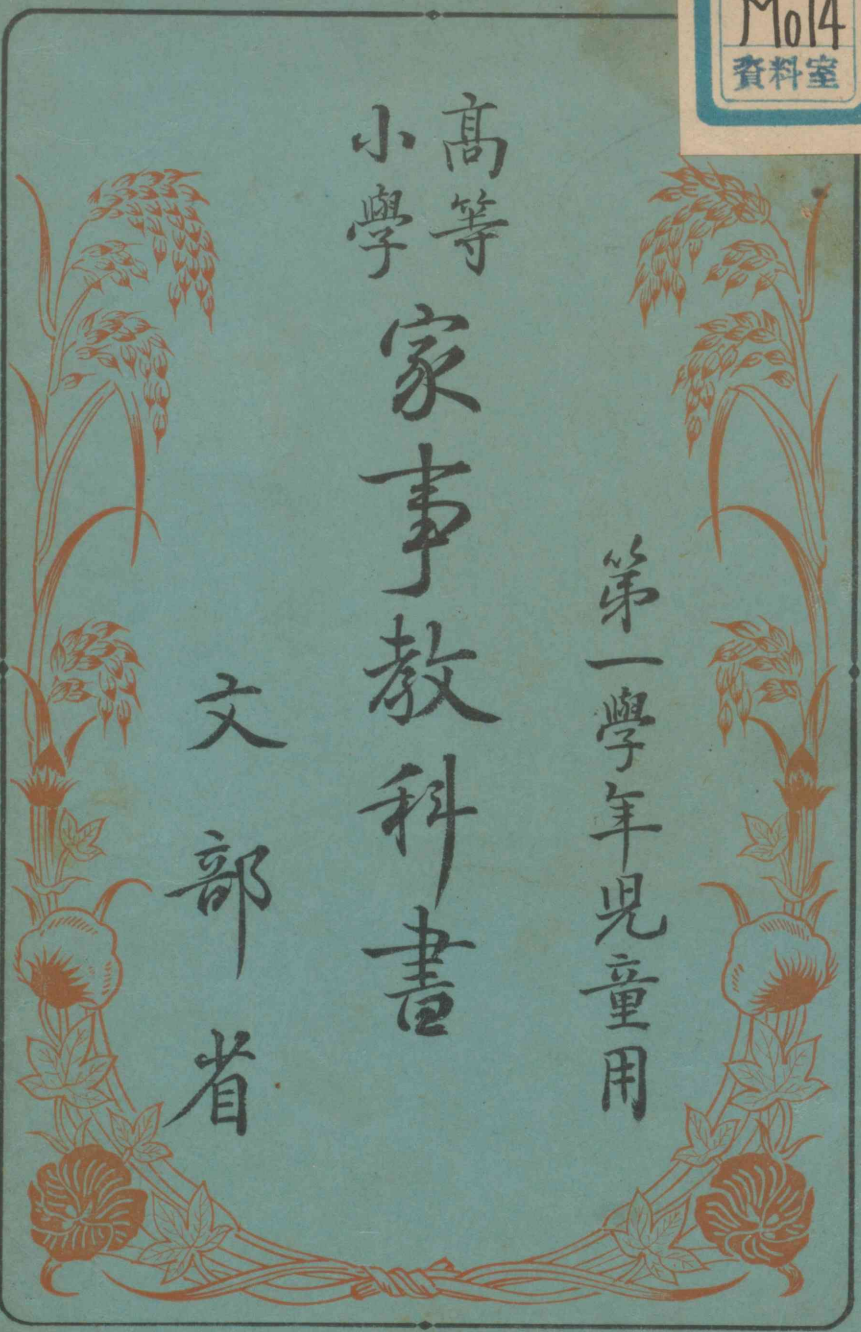 Mo14
資料室
第一學年児童用
高等
小學
家事教科書
文部省